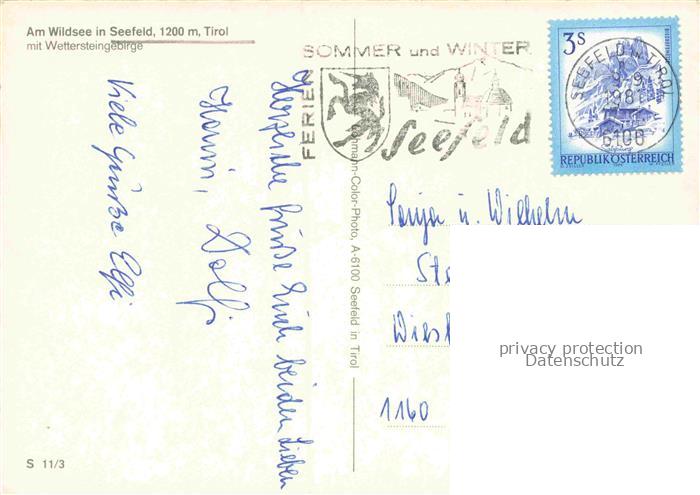 Am Wildsee in Seefeld, 1200 m, Tirol
mit Wettersteingebirge
Herzliche Grüße Euch beiden Lieben
Hanni, Dolfi
Viele Grüße Elfi
S 11/3
FERIEN
SOMMER und WINTER
Seefeld
-Color-Photo, A-6100 Seefeld in Tirol
3S
REPUBLIK ÖSTERREICH
SEEFELD IN TIROL
6100
Sonja u. Wilhelm
1160
privacy protection
Datenschutz